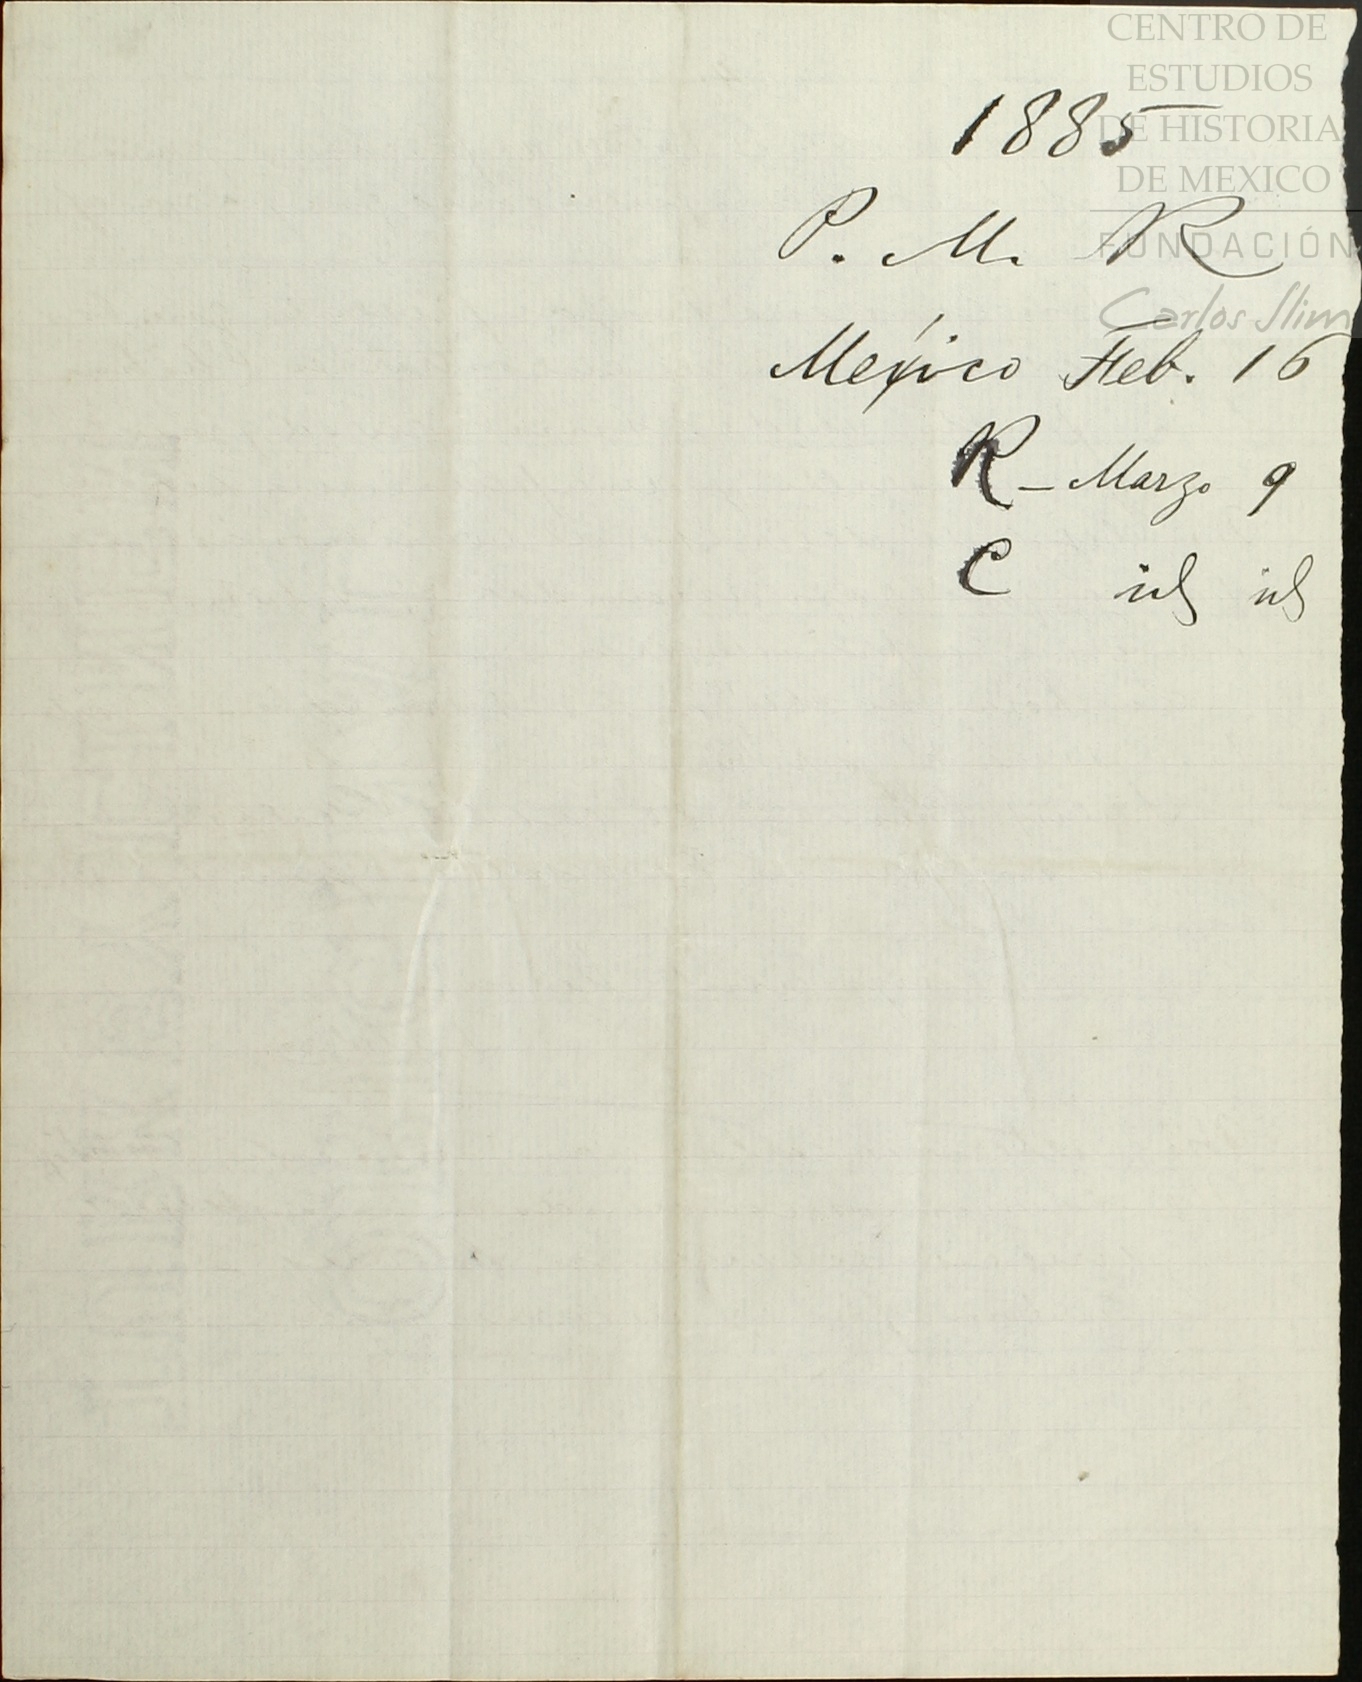 CENTRO DE
ESTUDIOS
DE HISTORIA
DE MEXICO
FUNDACIÓN
Carlos Slim
1885
P. M. R
México Feb. 16
R - Marzo 9
C id id